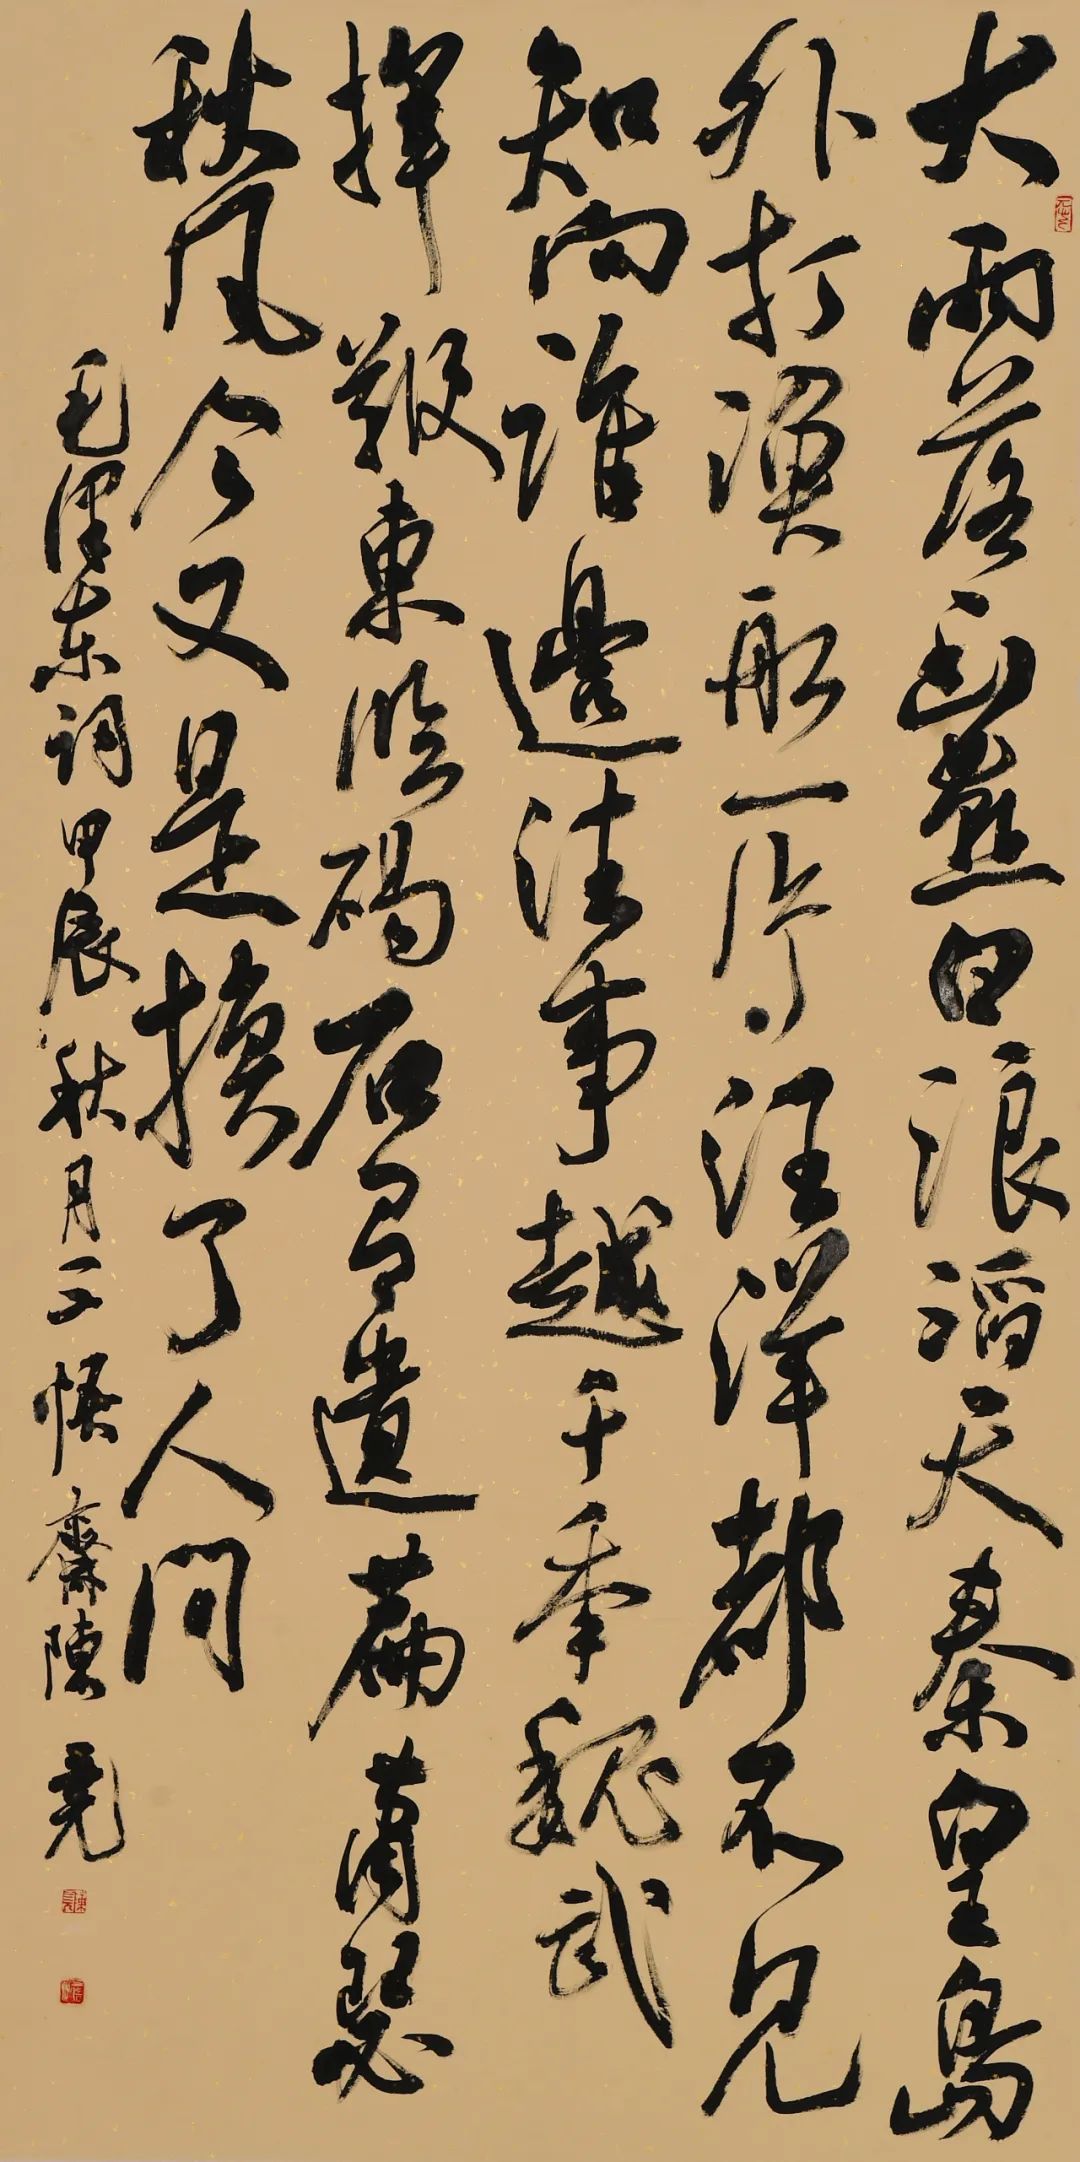 大雨落幽燕白浪滔天秦皇島
外打漁船一片汪洋都不見
知向誰邊往事越千年魏武
揮鞭東臨碣石有遺篇蕭瑟
秋风今又是換了人間
毛澤东詞甲辰秋月于悟齋陳亮